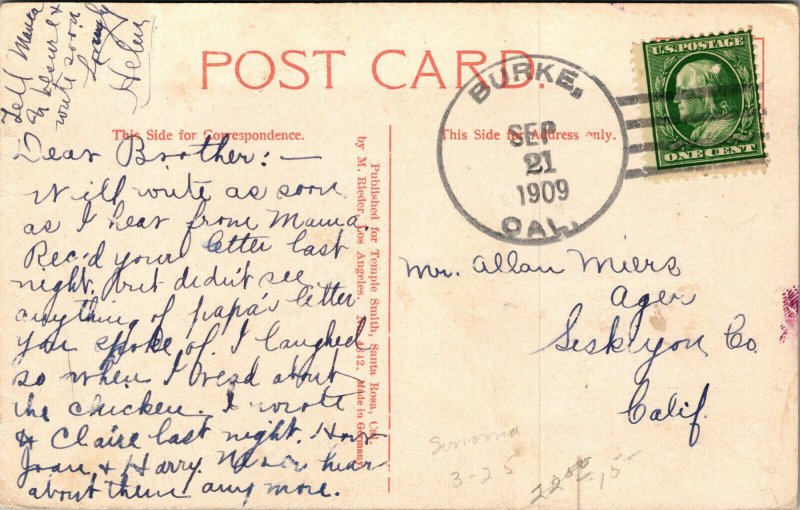 Tell Mama
& Henri &
write soon
Lovingly
Helen
POST CARD.
BURKE,
SEP
21
1909
CAL.
U.S. POSTAGE
ONE CENT
This Side for Correspondence.
This Side for Address only.
Dear Brother:—
Will write as soon
as I hear from Mama.
Rec'd your letter last
night, but didn't see
anything of papa's letter
you spoke of. I laughed
so when I read about
the chicken. I wrote
to Claire last night. How
Joan & Harry. Never hear
about them any more.
Published for Temple Smith, Santa Rosa, Cal.
by M. Rieder, Los Angeles. No. 4842. Made in Germany.
Mr. Allan Miers
Ager
Siskiyou Co
Calif.
Sonoma
3-25
22